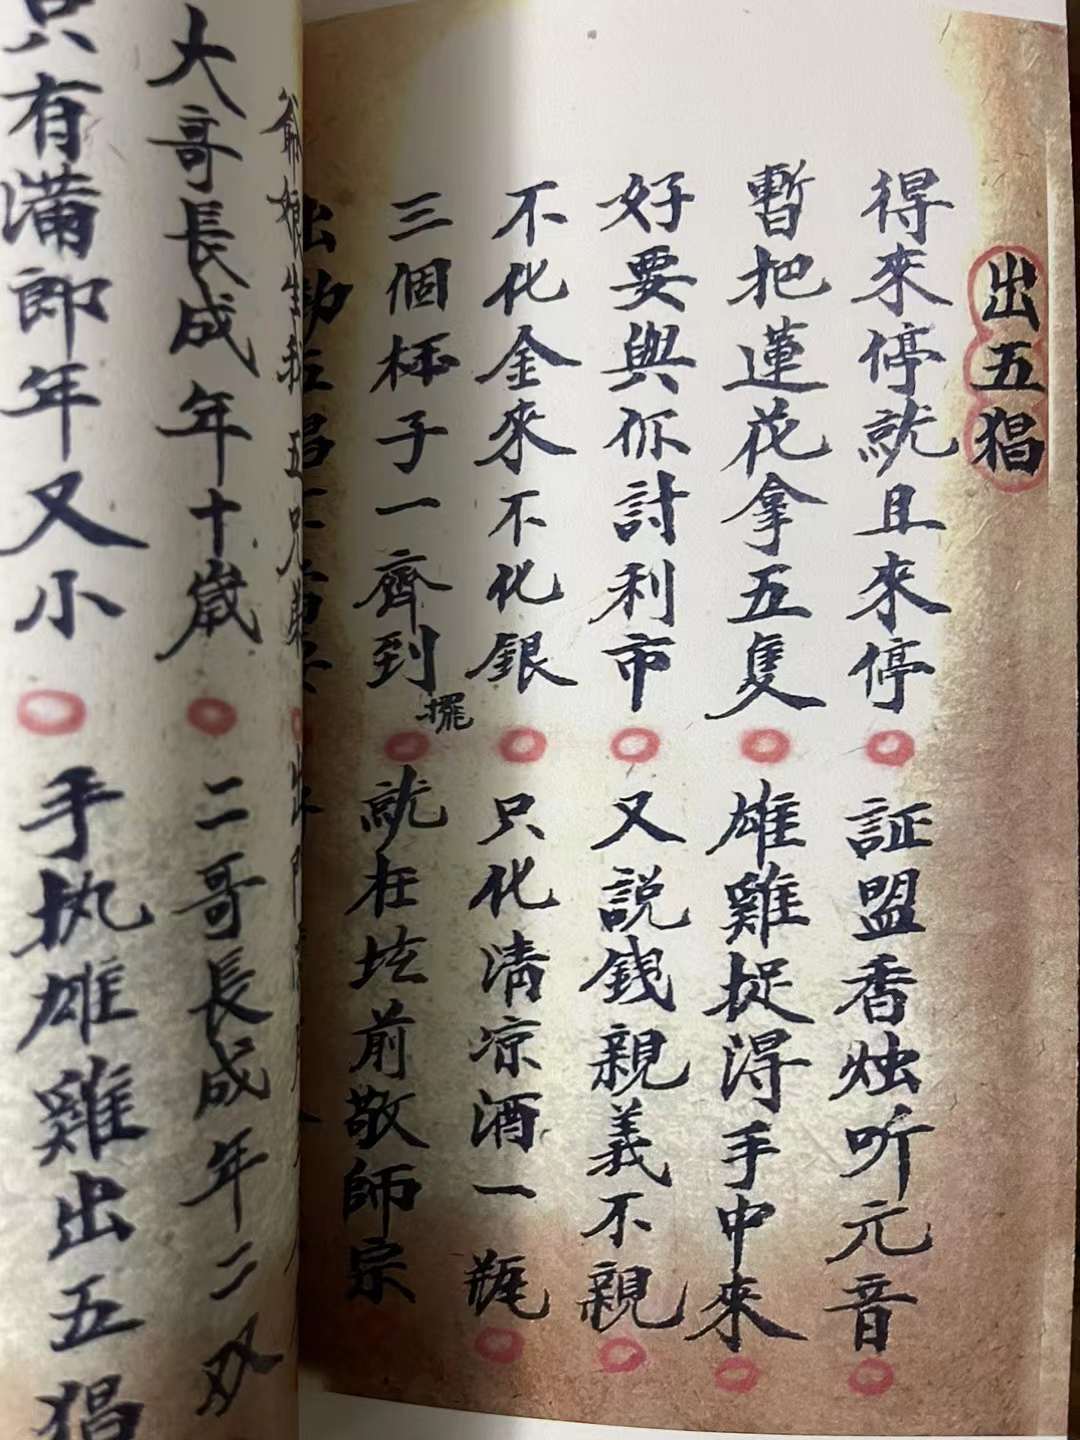 出五猖
得來停就且來停 証盟香烛听元音
暫把蓮花拿五隻 雄雞捉得手中來
好要與你討利市 又説錢親義不親
不化金來不化銀 只化清凉酒一瓶
三個杯子一齊到 就在坛前敬師宗
擺
爺娘生我五兄
大哥長成年十歲 二哥長成年二双
只有滿郎年又小 手执雄雞出五猖